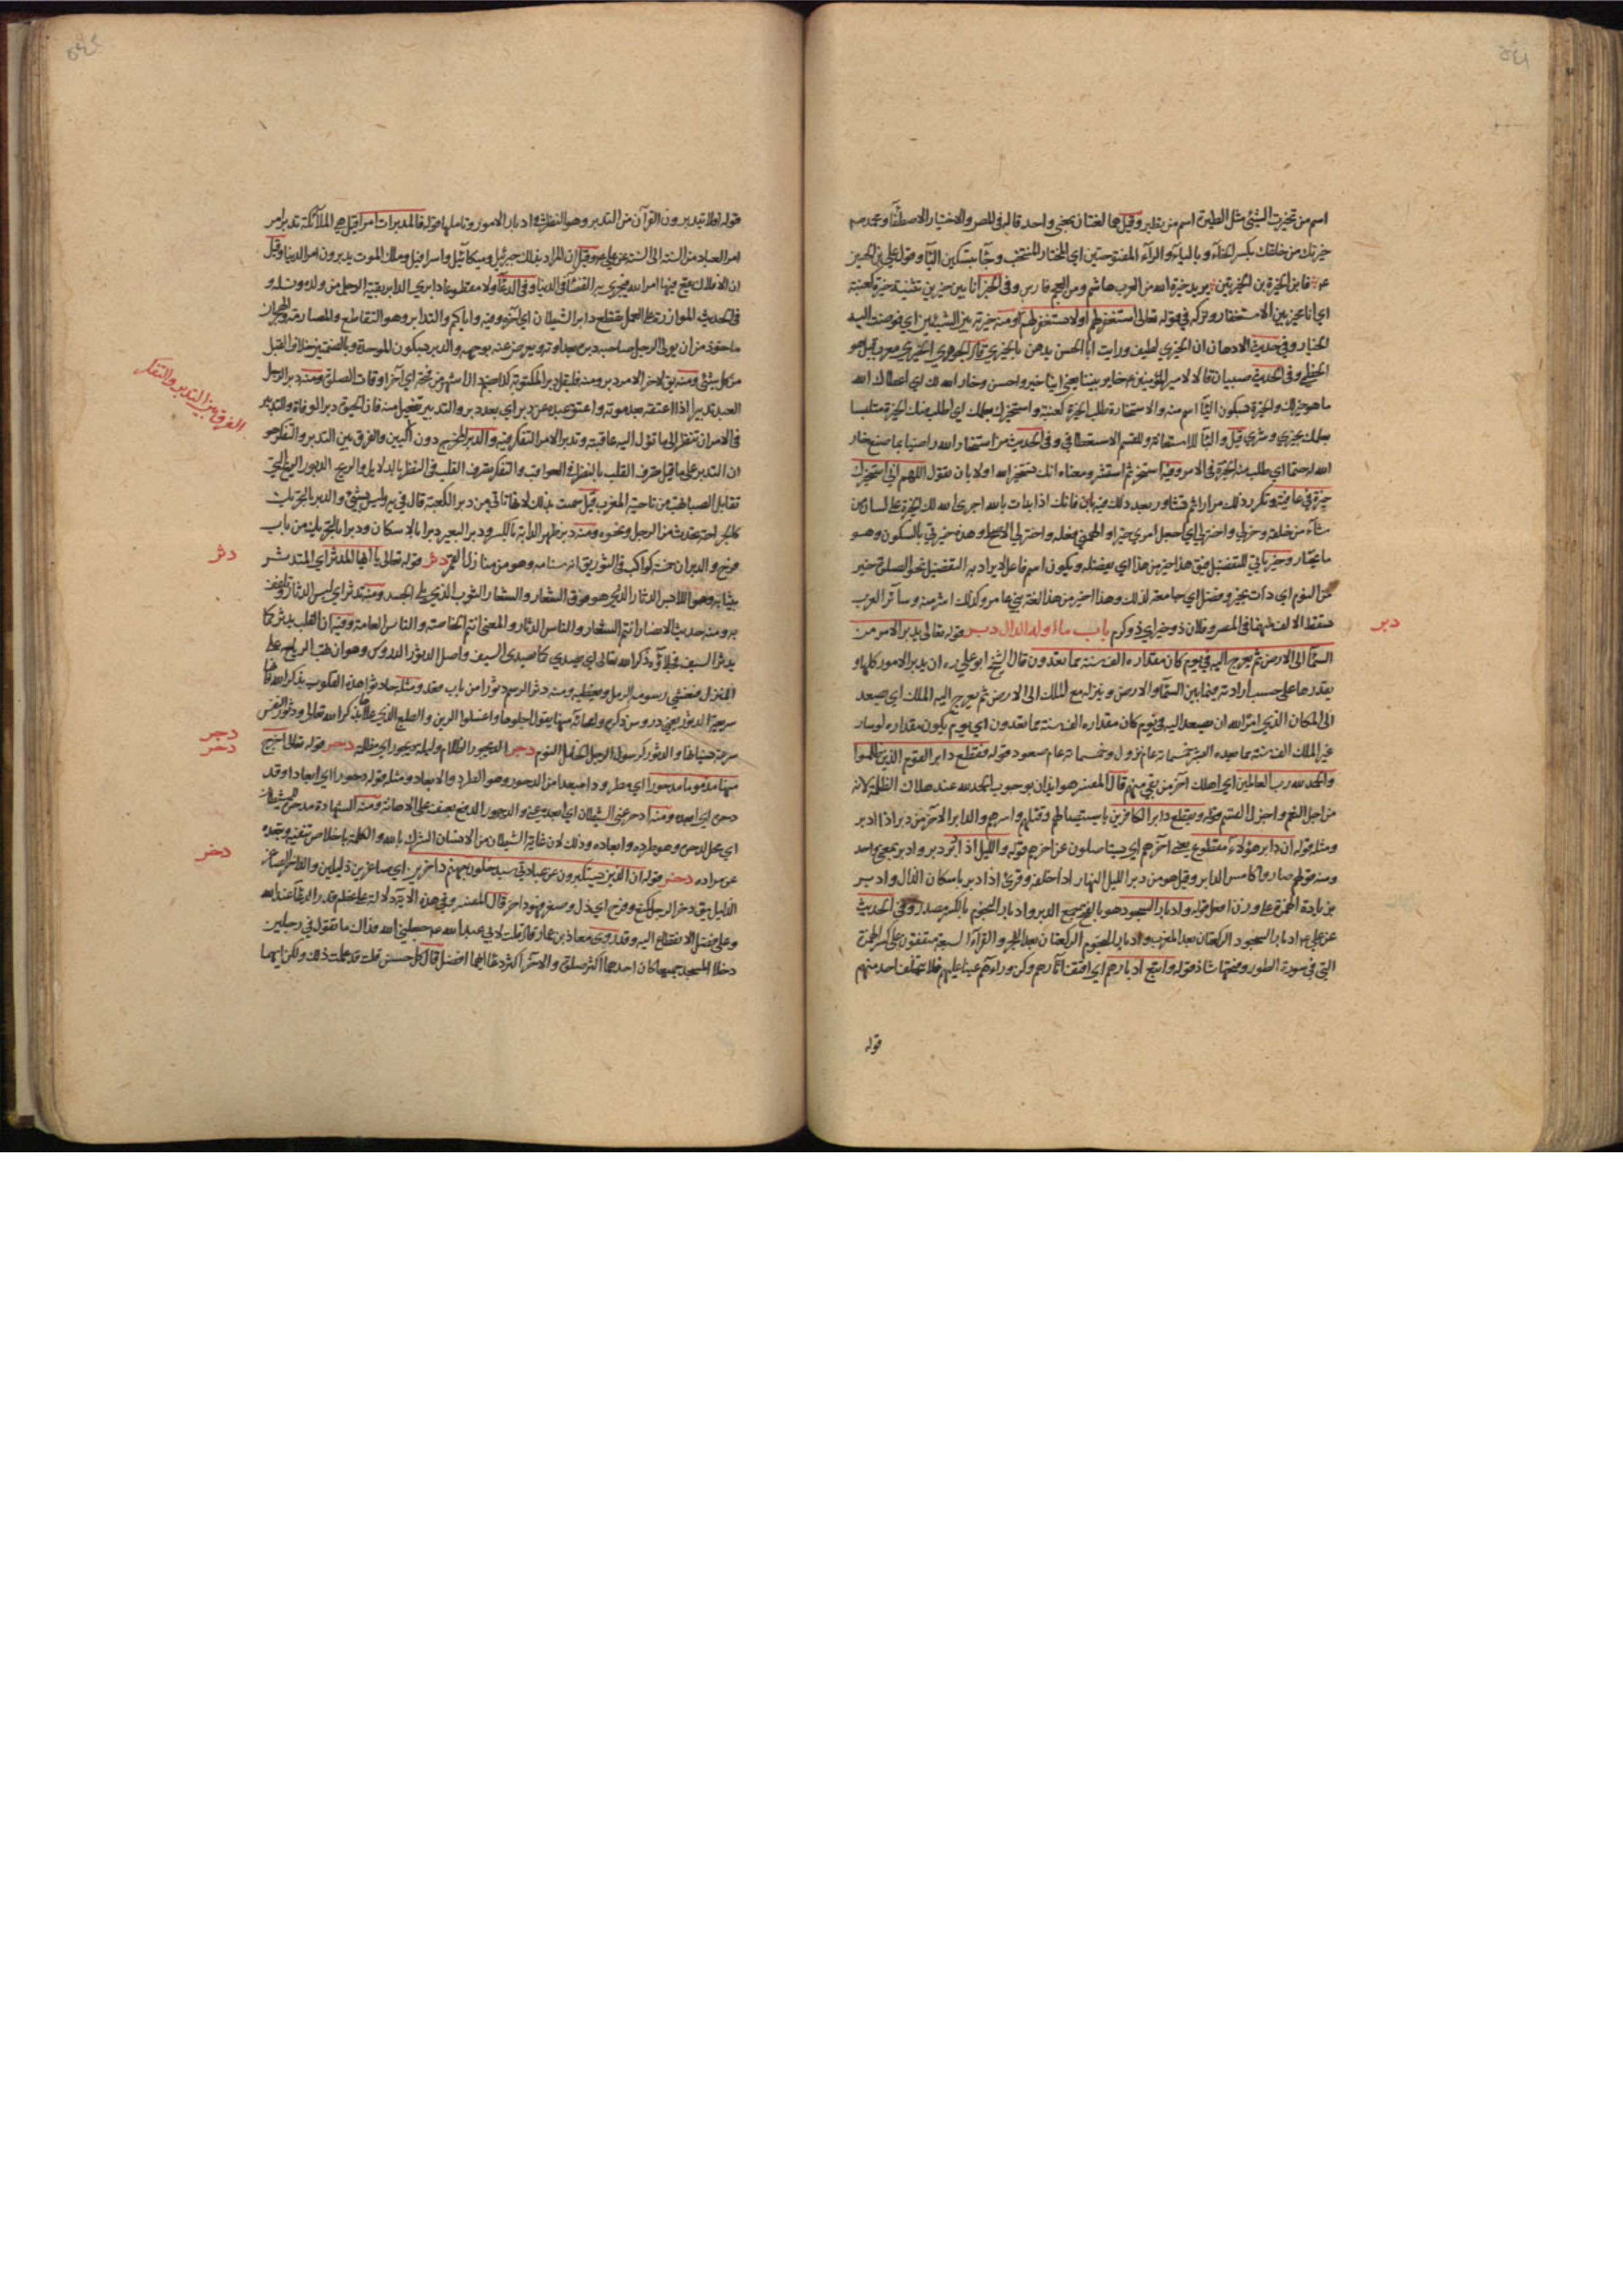 اسم من تخيرت الشئ مثل الطيرة اسم من تطير وقيل هما لغتان بمعنى واحد قاله في المصر والاختيار الاصطفاء ومحمد ص
خيرتك من خلقك بكسر الخاء وبالياء والراء المفتوحتين اي المختار المنتخب وجاء بتسكين الياء وقول علي بن الحسين
ع فانا بن الخيرة بن الخيرتين يريد خيرة الله من العرب هاشم ومن العجم فارس وفي الخبر انا بين خيرتين تثنية خيرة كعنبة
اي انا مخير بين الاستغفار وتركه في قوله تعالى استغفر لهم او لا تستغفر لهم ومنه خيرته بين الشيئين اي فوضت اليه
الخيار وفي حديث الادهان ان الخيري لطيف ورايت ابا الحسن يدهن بالخيري قال الجوهري الخيري معرب قيل هو
الخطمي وفي الحديث صبيان قالا لامير المؤمنين ع خاير بيننا يعني اينا خير واحسن وخار الله لك اي اعطاك الله
ما هو خير لك والخيرة بسكون الياء اسم منه والاستخارة طلب الخيرة كعنبة واستخيرك بعلمك اي اطلب منك الخيرة متلبسا
بعلمك بخيري وشري قيل والباء للاستعانة وللقسم الاستعطافي وفي الحديث من استخار الله راضيا بما صنع خار
الله له حتما اي طلب منه الخيرة في الامر وفيه استخر ثم استشر ومعناه انك تستخير الله اولا بان تقول اللهم اني استخيرك
خيرة في عافية وتكرر ذلك مرارا ثم تشاور بعد ذلك فيه فانك اذا بدات بالله اجرى الله لك الخيرة على لسان من
شاء من خلقه وخر لي واختر لي اي اجعل امري خيرا والهمني فعله واختر لي الاصلح وهذه خيرتي بالسكون وهو
ما يختار وخير ياتي للتفضيل فيق هذا خير من هذا اي يفضله ويكون اسم فاعل لا يراد به التفضيل نحو الصلوة خير
من النوم اي ذات خير وفضل اي جامعة لذلك وهذا اخير من هذا لغة بني عامر وكذلك اشر منه وسائر العرب
تسقط الالف منهما في المصر وفلان ذو خير اي ذو كرم باب ما اوله الدال دبر قوله تعالى يدبر الامر من
السماء الى الارض ثم يعرج اليه في يوم كان مقداره الف سنة مما تعدون قال الشيخ ابو علي ره ان يدبر الامور كلها و
يقدرها على حسب ارادته فيما بين السماء والارض وينزله مع الملك الى الارض ثم يعرج اليه الملك اي يصعد
الى المكان الذي امره الله ان يصعد اليه في يوم كان مقداره الف سنة مما تعدون اي يوم يكون مقداره لو سار
غير الملك الف سنة مما يعده البشر خمسمائة عام نزول وخمسمائة عام صعود قوله فقطع دابر القوم الذين ظلموا
والحمد لله رب العالمين اي اهلك آخر من بقي منهم قال المفسر هو ايذان بوجوب الحمد لله عند هلاك الظلمة لانه
من اجل النعم واجزل القسم قوله ويقطع دابر الكافرين باستيصالهم وقتلهم واسرهم والدابر الاخر من دبر اذا ادبر
ومثله قوله ان دابر هؤلاء مقطوع يعني آخرهم اي يستاصلون عن اخرهم قوله والليل اذ ادبر دبر وادبر بمعنى واحد
ومنه قولهم صاروا كامس الدابر وقيل هو من دبر الليل النهار اذا خلفه وقرئ اذا ادبر باسكان الذال وادبر
بزيادة الهمزة على وزن افعل قوله وادبار السجود هو بالفتح جمع الدبر وادبار النجوم بالكسر مصدر وفي الحديث
عن علي ع ادبار السجود الركعتان بعد المغرب وادبار النجوم الركعتان بعد الفجر والقراء السبعة متفقون على كسر الهمزة
التي في سورة الطور وفتحها شاذ قوله واتبع ادبارهم اي اقتف آثارهم وكن وراءهم عينا عليهم فلا يتخلف احد منهم
قوله
دبر
قوله افلا يتدبرون القرآن من التدبر وهو النظر في ادبار الامور وتاملها قوله فالمدبرات امرا قيل هي الملائكة تدبر امر
امر العباد من السنة الى السنة عن علي ع وقيل ان المراد بذلك جبرئيل وميكائيل واسرافيل وملك الموت يدبرون امر الدنيا وقيل
ان الافلاك يقع فيها امر الله فيجري به القضاء في الدنيا وفي الدعاء ولا مقطوعا دابري الدابر بقية الرجل من ولده ونسله و
في الحديث الموازرة على العمل يقطع دابر الشيطان اي آخره وفيه واياكم والتدابر وهو التقاطع والمصارمة والهجران
ماخوذ من ان يولى الرجل صاحبه دبره بعداوة ويعرض عنه بوجهه والدبر بسكون الموحدة وبالضمتين خلاف القبل
من كل شئ ومنه يق لاخر الامر دبر ومنه فليقل دبر المكتوبة كذا ضبطه الاشهر من فتحه اي آخر اوقات الصلوة ومنه دبر الرجل
العبد تدبيرا اذا اعتقه بعد موته واعتق عبده عن دبر اي بعد دبر والتدبير تفعيل منه فان الحيوة دبر الوفاة والتدبير
في الامر ان تنظر الى ما تؤل اليه عاقبته وتدبر الامر التفكر فيه والفرق بين التدبر والتفكر هو
ان التدبر على ما قيل تصرف القلب بالنظر في العواقب والتفكر تصرف القلب في النظر بالدلايل والريح الدبور الريح التي
تقابل الصبا تهب من ناحية المغرب قيل سميت بذلك لانها تاتي من دبر الكعبة قال في يه وليس بشئ والدبر بالتحريك
كالجراحة تحدث من الرحل ونحوه ومنه دبر ظهر الدابة بالكسر ودبر البعير دبرا بالاسكان ودبرا بالتحريك من باب
فرح والدبران خمسة كواكب في الثور يق انه سنامه وهو من منازل القمر دثر قوله تعالى يا ايها المدثر اي المتدثر
بثيابه وهو اللابس الدثار الذي هو فوق الشعار والشعار الثوب الذي يلي الجسد ومنه تدثر اي لبس الدثار وتلفف
به ومنه حديث الانصار انتم الشعار والناس الدثار والمعنى انتم الخاصة والناس العامة وفيه ان القلب يدثر كما
يدثر السيف فجلاؤه ذكر الله تعالى اي يصدئ كما يصدئ السيف واصل الدثور الدروس وهو ان تهب الرياح على
المنزل فتغشي رسومه الرمل وتغطيه ومنه دثر الرسم دثورا من باب قعد ومثله حادثوا هذه القلوب بذكر الله فانها
سريعة الدثور يعني دروس ذكر الله وامحائه منها يقول اجلوها واغسلوا الرين والطبع الذي علاها بذكر الله تعالى ودثور النفس
سرعة نسيانها والدثور كرسول الرجل الخامل النؤم دجر الديجور الظلام وليلة ديجور اي مظلمة دحر قوله تعالى اخرج
منها مذموما مدحورا اي مطرودا مبعدا من الدحور وهو الطرد والابعاد ومثله قوله دحورا اي ابعادا وقد
دحره اي ابعده ومنه ادحر عني الشيطان اي ابعده عني والدحور الدفع بعنف على الاهانة ومنه الشهادة مدحرة الشيطان
اي محل لدحره وهو طرده وابعاده وذلك لان غاية الشيطان من الانسان الشرك بالله والكلمة باخلاص تنفيه وتبعده
عن مراده دخر قوله ان الذين يستكبرون عن عبادتي سيدخلون جهنم داخرين اي صاغرين ذليلين والداخر الصاغر
الذليل يق دخر الرجل كمنع وفرح اي ذل وصغر فهو داخر قال المفسر وفي هذه الآية دلالة على عظم قدر الدعاء عند الله
وعلى فضل الانقطاع اليه وقد روى معاذ بن عمار قال قلت لابي عبد الله ع جعلني الله فداك ما تقول في رجلين
دخلا المسجد جميعا كان احدهما اكثر صلوة والاخر اكثر دعاء ايهما افضل قال كل حسن قلت قد علمت ذلك ولكن ايهما
الفرق بين التدبر والتفكر
دثر
دجر
دحر
دخر